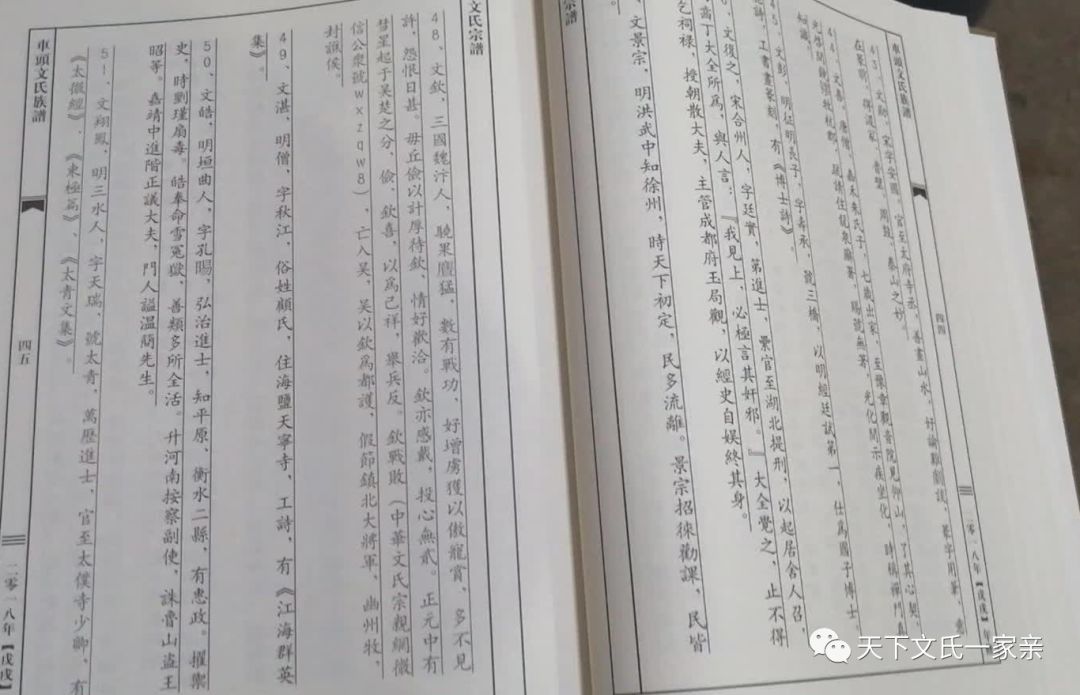 車頭文氏族譜
四四
二零一八年【戊戌】
43、文勛，宋字安國。官至太府寺丞，善畫山水。好論難劇談，篆字用筆，意
在隸前，得溫家
周鼓、泰山之妙。
44、文喜，唐僧，嘉禾朱氏子，七歲出家，至豫章觀音院見仰山，了其心契，
疏請住龍泉廨署，賜號無著，光化間示疾坐化，時稱禪門真
知識。
45、文彭，明征明長子，字壽承，號三橋，以明經廷試第一，仕為國子博士，
工書畫篆刻，有《博士詩》。
文復之，宋合州人，字廷實，第進士，累官至湖北提刑，以起居舍人召
丁大全所為，與人言：『我見上，必極言其奸邪。』大全覺之，止不得
乞祠祿，授朝散大夫，主管成都府玉局觀，以經史自娛終其身。
文景宗，明洪武中知徐州，時天下初定，民多流離。景宗招徠勸課，民皆
宗譜
文氏宗譜
48、文欽，三國魏汴人，驍果麤猛，數有戰功，好增虜獲以僥寵賞，多不見
許，怨恨日甚。毋丘儉以計厚待欽，情好歡洽。欽亦感戴，投心無貳。正元中有
彗星起于吴楚之分，儉、欽喜，以為己祥，舉兵反。欽戰敗（中華文氏宗親網微
信公衆號wxzqw8），亡入吴，吴以欽為都護，假節鎮北大將軍，幽州牧，
封譙侯。
49、文湛，明僧，字秋江，俗姓顧氏，住海鹽天寧寺，工詩，有《江海群英
集》。
50、文皓，明垣曲人，字孔賜，弘治進士，知平原、衡水二縣，有惠政。擢禦
史，時劉瑾扇毒。皓奉命雪冤獄，善類多所全活。升河南按察副使，誅魯山盜王
昭等。嘉靖中進階正議大夫，門人謚溫簡先生。
51、文翔鳳，明三水人，字天瑞，號太青，萬歷進士，官至太僕寺少卿，有
《太微經》、《東極篇》、《太青文集》。
車頭文氏族譜
四五
二零一八年【戊戌】
天下文氏一家亲